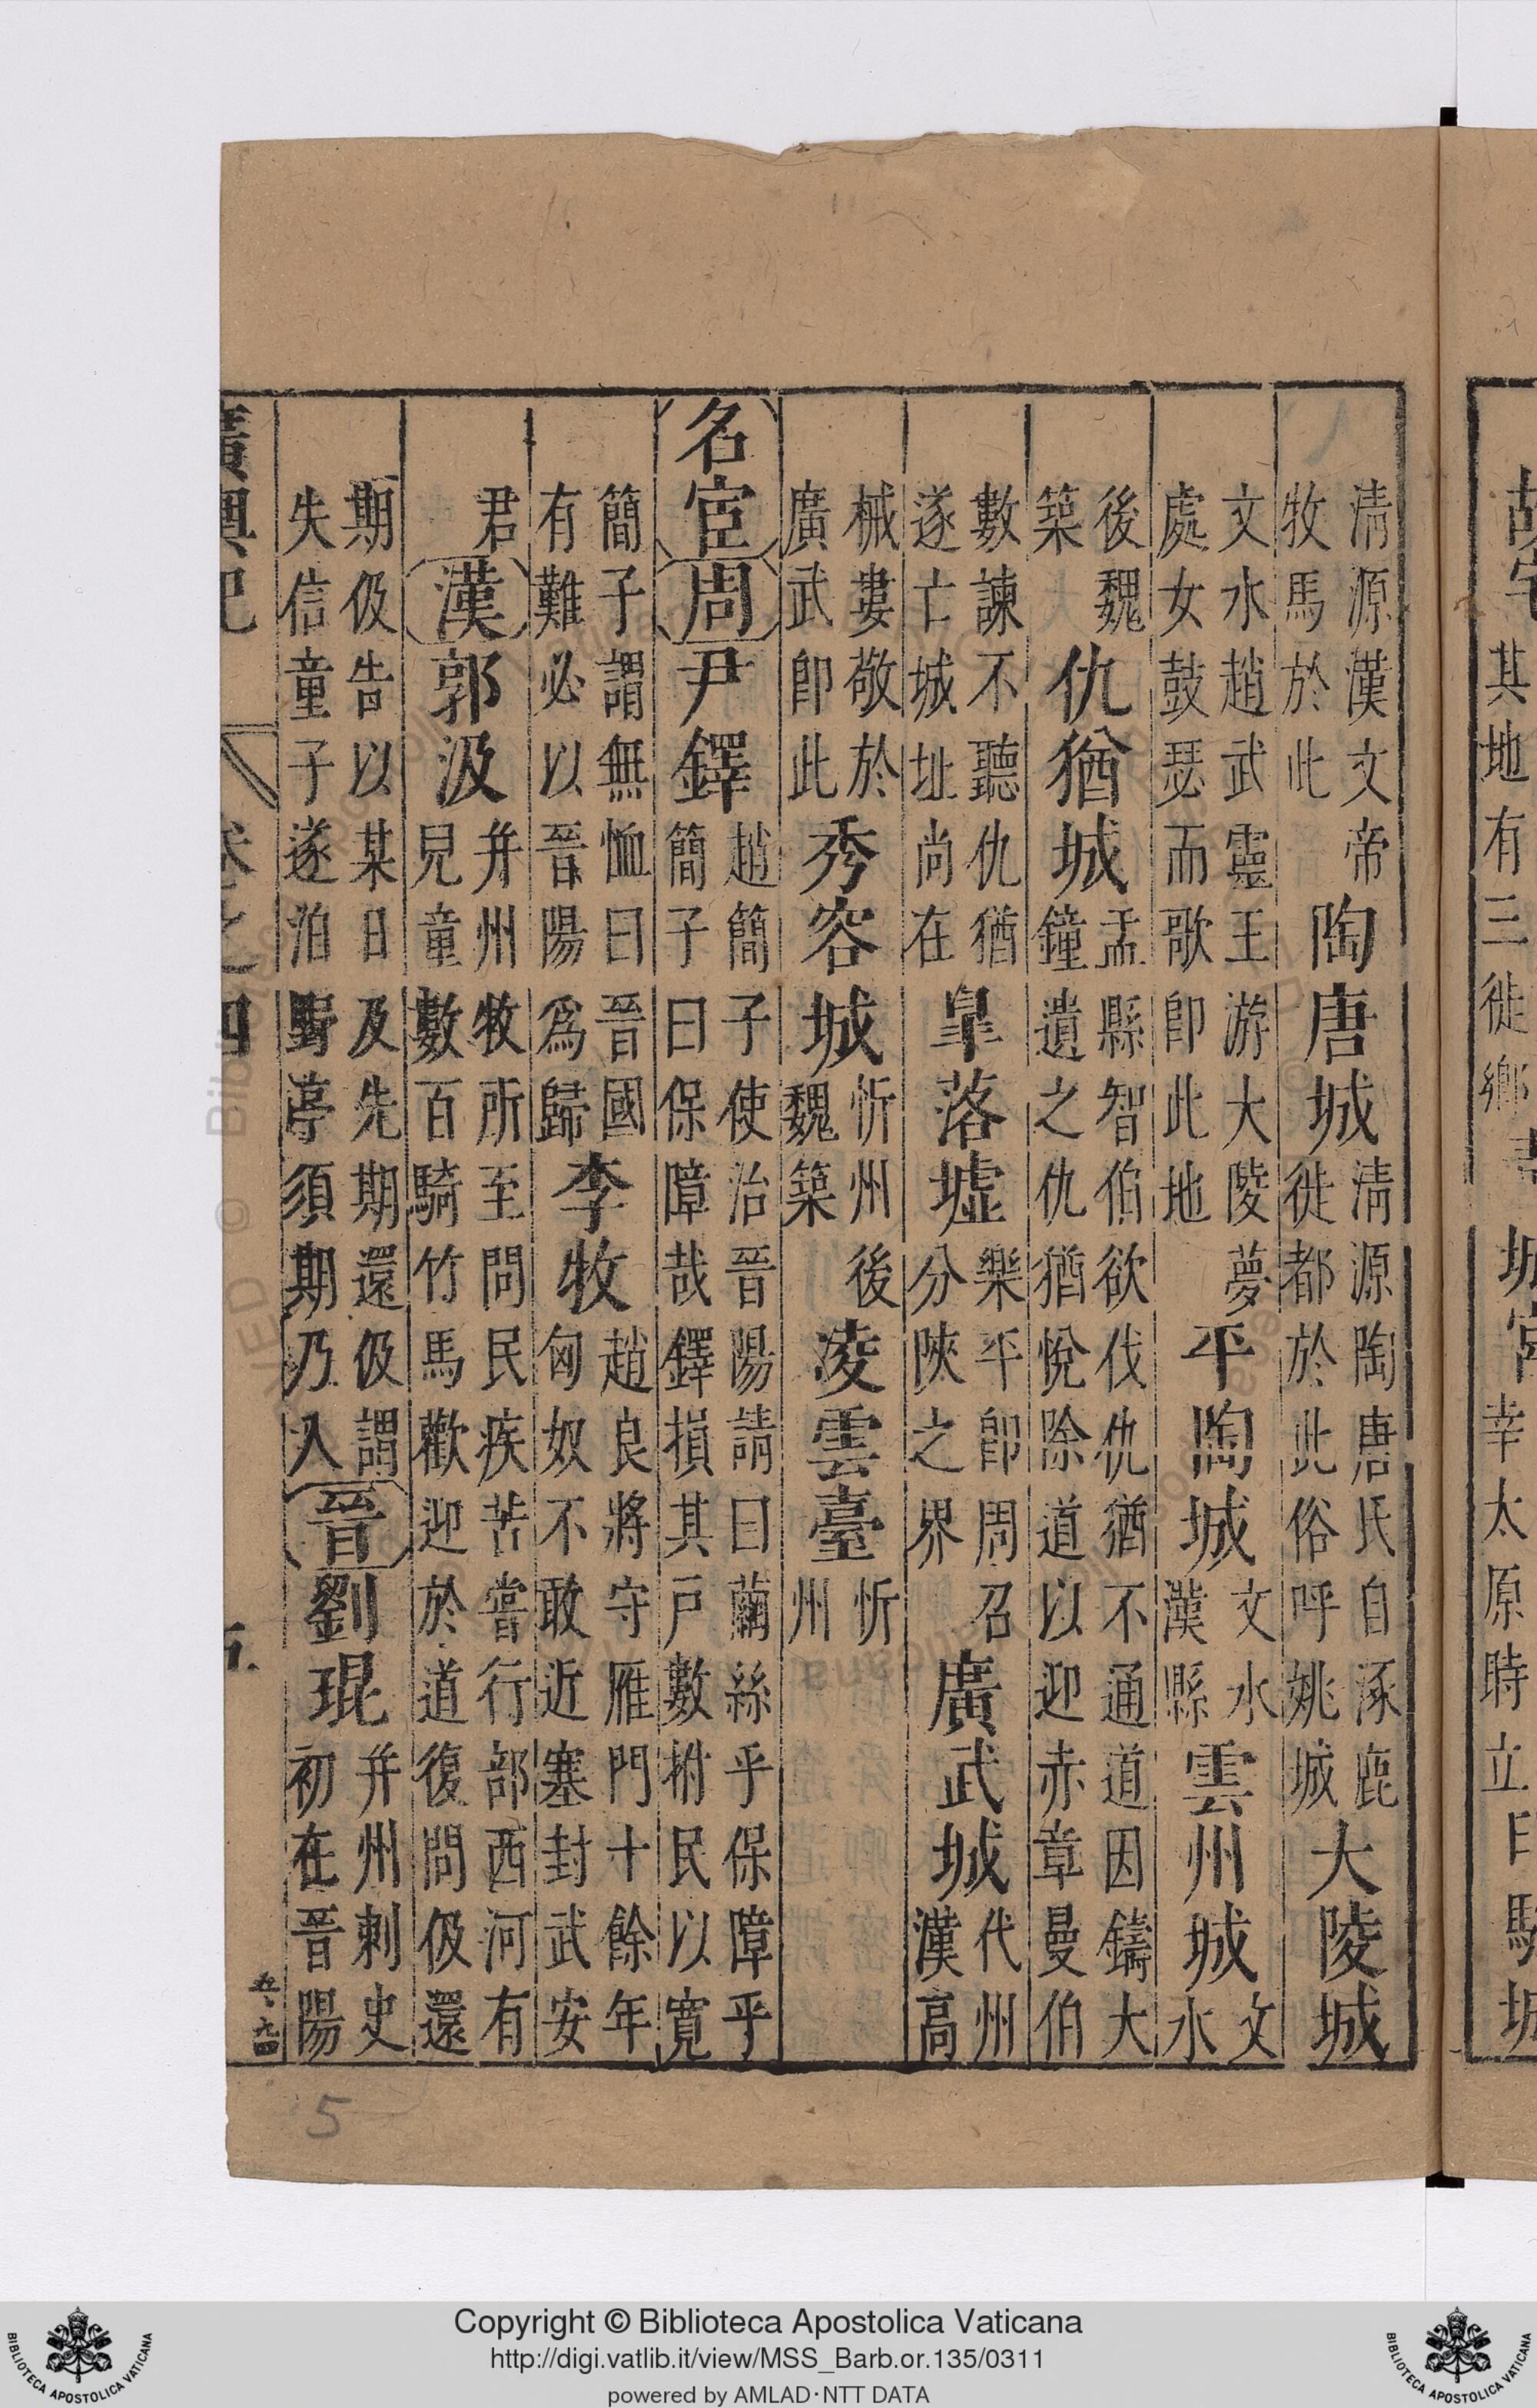 其地有三徙鄉
幸太原時立
清源漢文帝
牧馬於此
陶唐城
清源陶唐氏自涿鹿
徙都於此俗呼姚城
大陵城
文水趙武靈王游大陵夢
處女鼓瑟而歌卽此地
平陶城
文水
漢縣
雲州城
文
水
後魏
築
仇猶城
盂縣智伯欲伐仇猶不通道因鑄大
鐘遺之仇猶悅除道以迎赤章曼伯
數諫不聽仇猶
遂亡城址尚在
皐落墟
樂平卽周召
分陝之界
廣武城
代州
漢高
械婁敬於
廣武卽此
秀容城
忻州後
魏築
凌雲臺
忻
州
名宦
周
尹鐸
趙簡子使治晉陽請曰繭絲乎保障乎
簡子曰保障哉鐸損其戶數拊民以寬
簡子謂無恤曰晉國
有難必以晉陽爲歸
李牧
趙良將守雁門十餘年
匈奴不敢近塞封武安
君
漢
郭汲
并州牧所至問民疾苦嘗行部西河有
兒童數百騎竹馬歡迎於道復問伋還
期伋告以某日及先期還伋謂
失信童子遂泊野亭須期乃入
晉
劉琨
并州刺史
初在晉陽
廣輿記
卷之四
5
Copyright © Biblioteca Apostolica Vaticana
http://digi.vatlib.it/view/MSS_Barb.or.135/0311
powered by AMLAD·NTT DATA
BIBLIOTECA APOSTOLICA VATICANA
BIBLIOTECA APOSTOLICA VATICANA